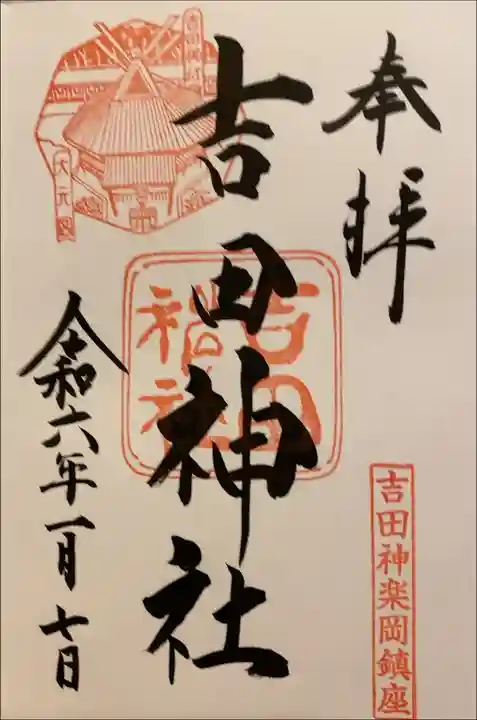 奉拝
吉田神楽岡鎮座
吉田神社
吉田神社
大元宮
令和六年一月七日